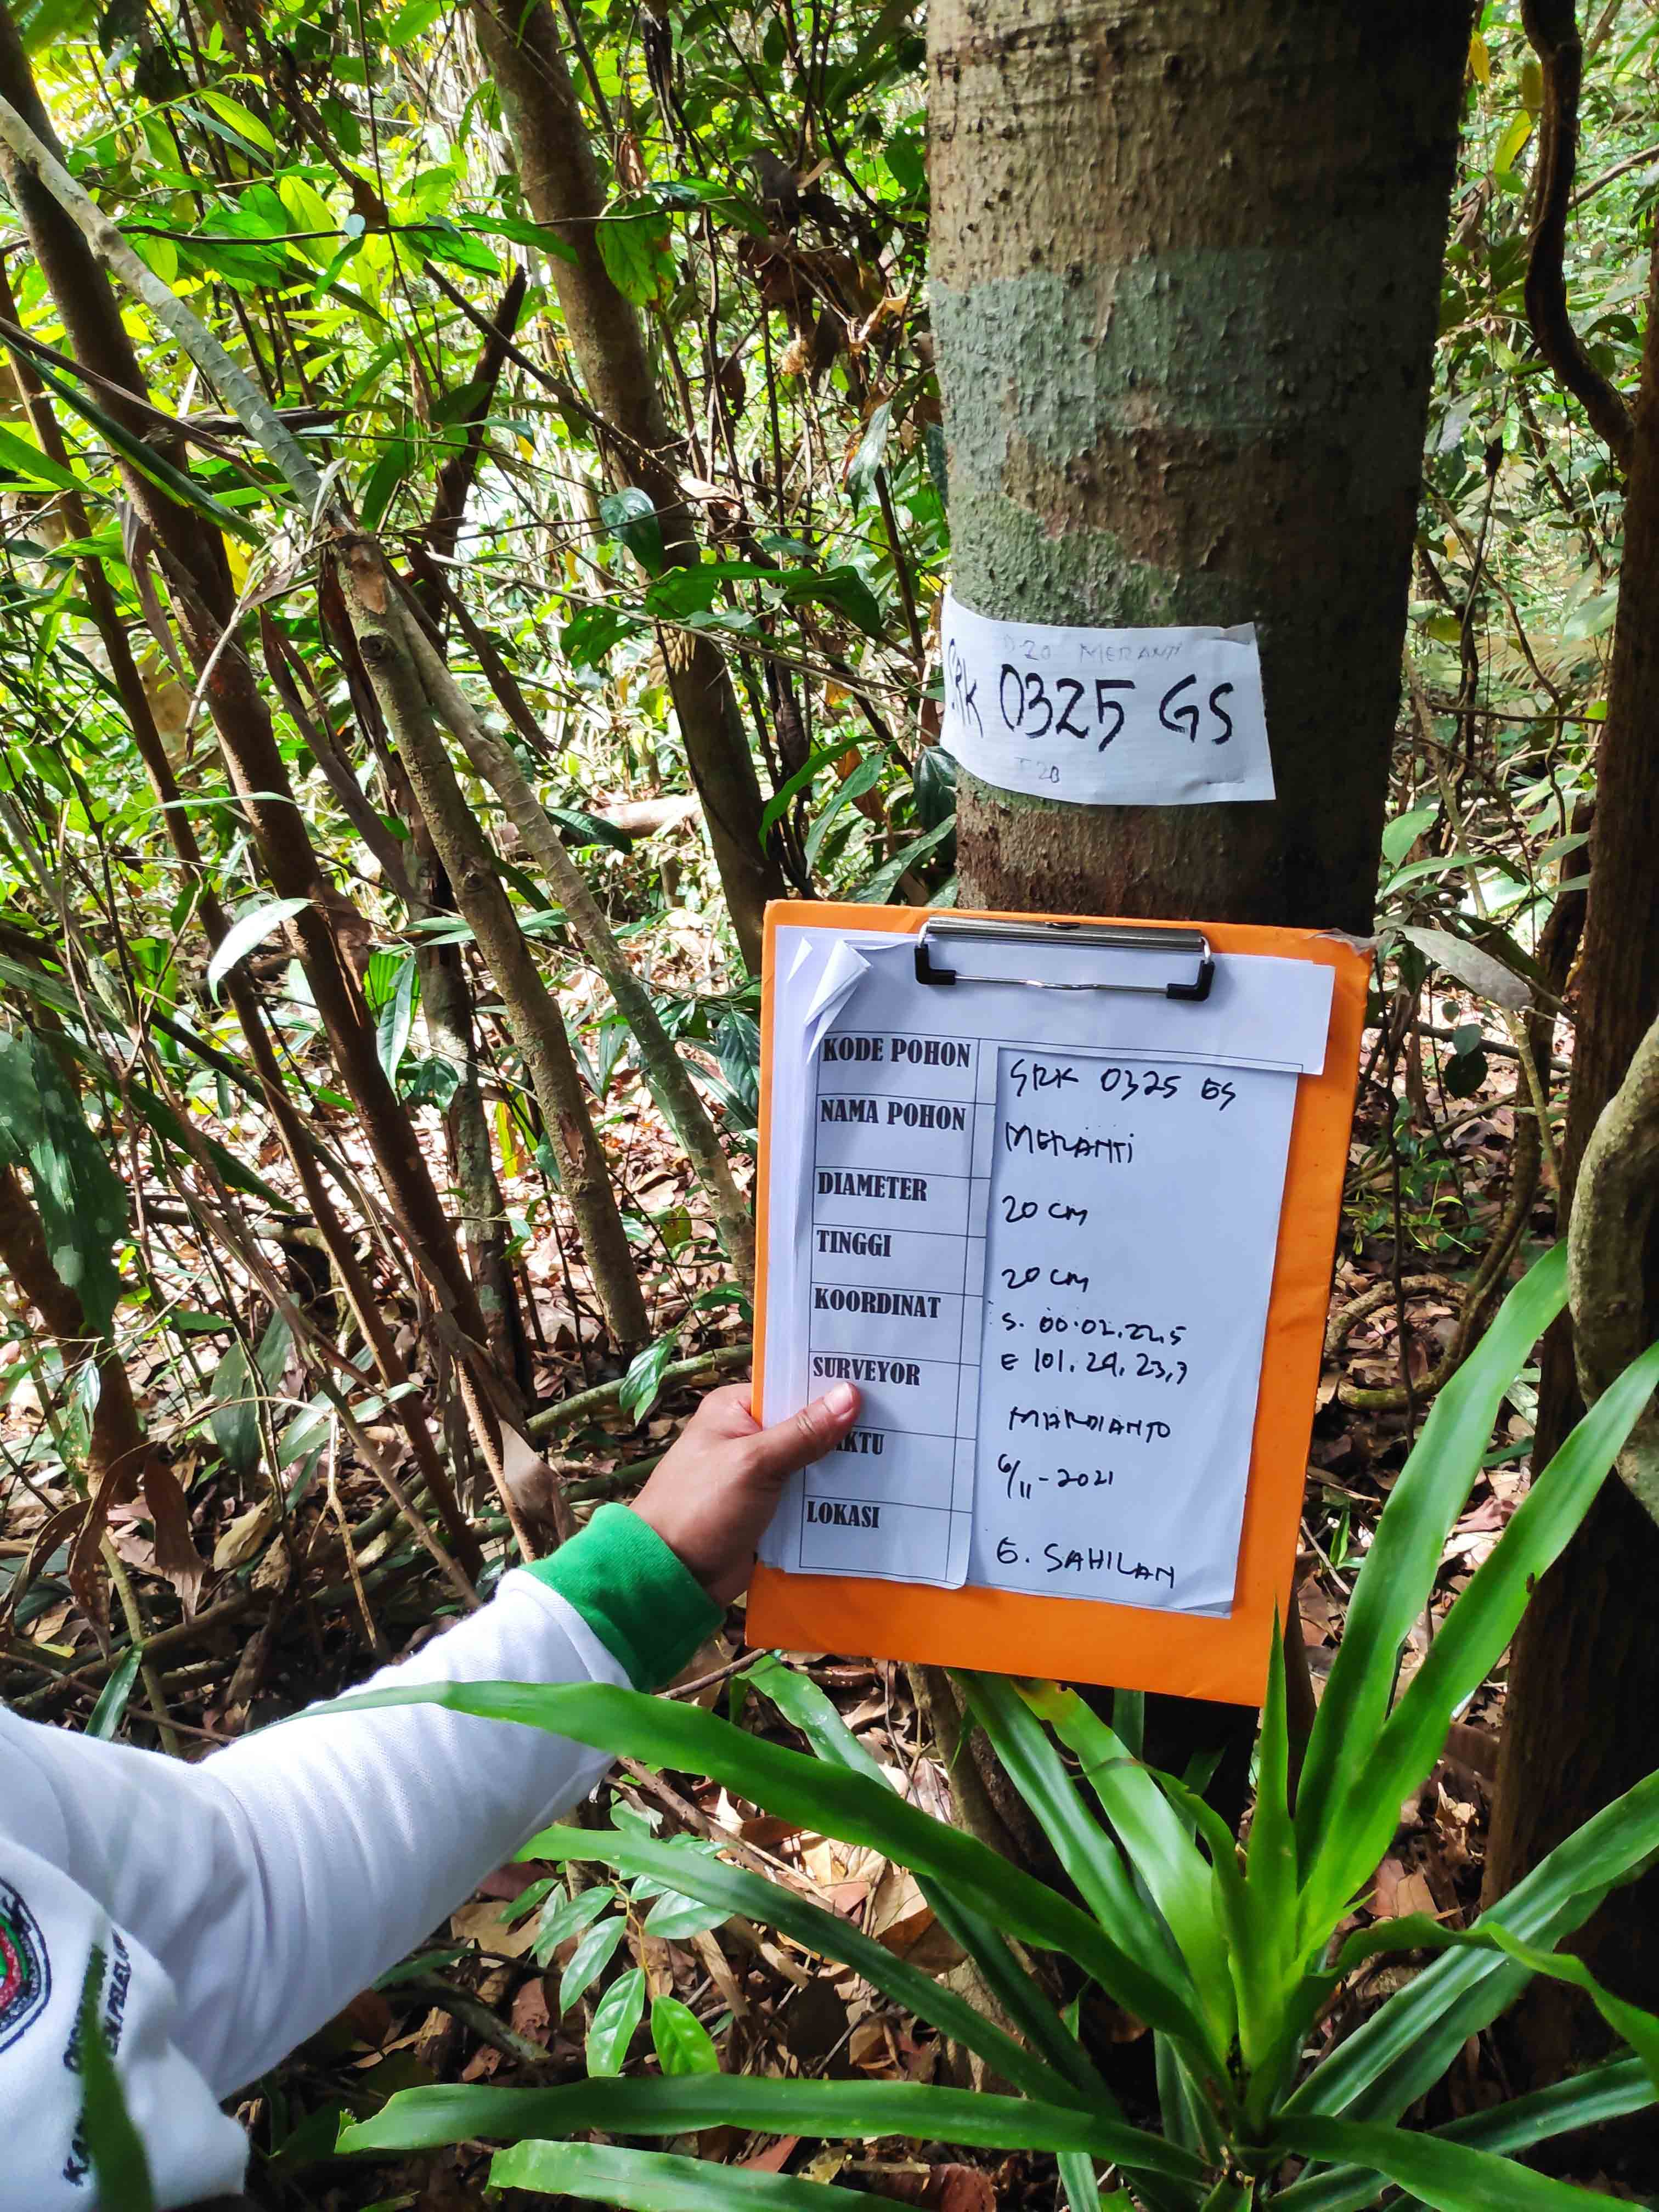 D 20 MERANTI
SRK 0325 GS
T 20
KODE POHON SRK 0325 GS
NAMA POHON MERANTI
DIAMETER 20 CM
TINGGI 20 CM
KOORDINAT S. 00.02.22,5
E 101. 24. 23,7
SURVEYOR MARDIANTO
AKTU 6/11-2021
LOKASI G. SAHILAN